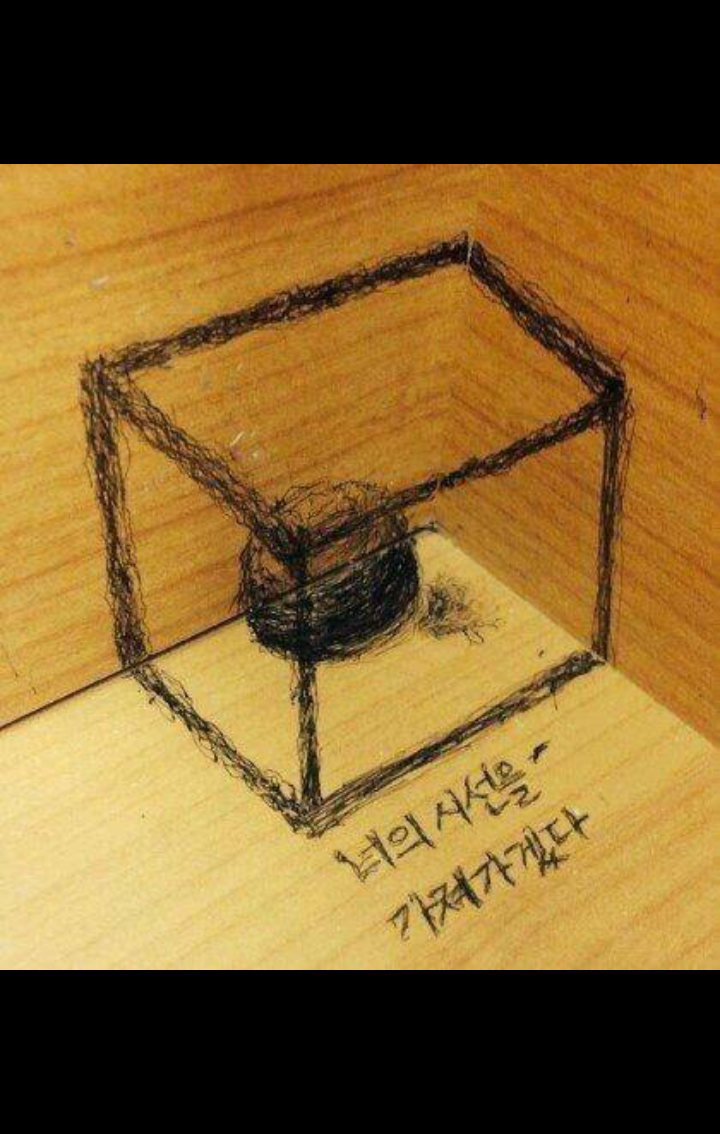 너의 시선을-
가져가겠다